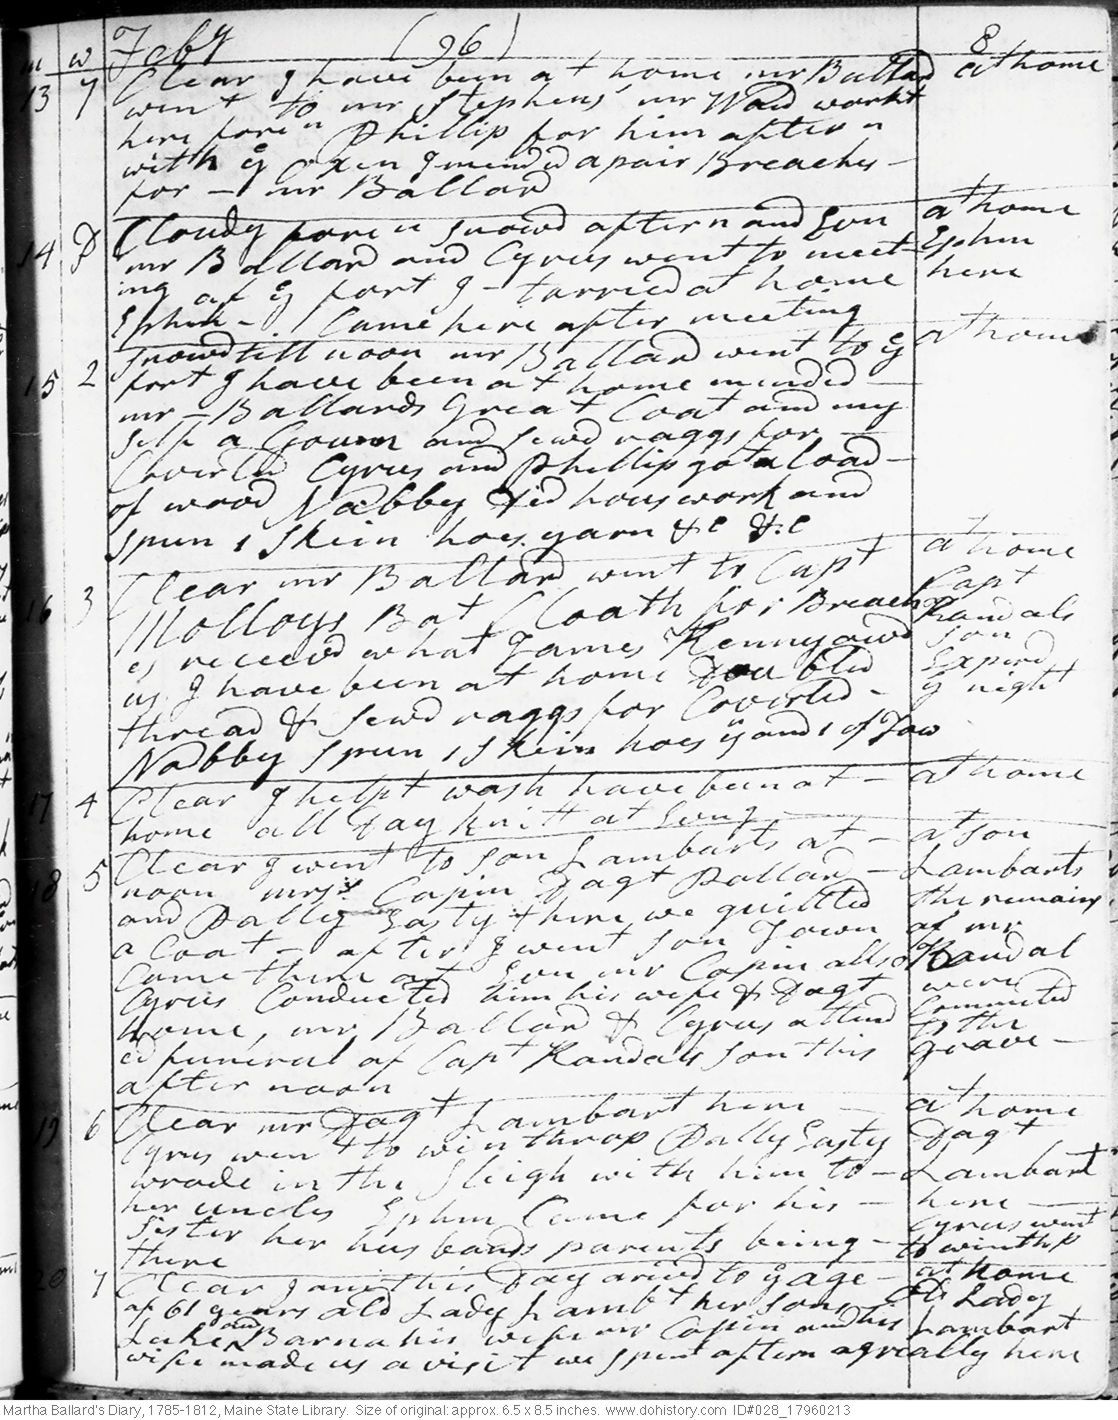 m w Feby (96) 8
13 7 Clear I have been at home mr Ballard at home
went to mr Stephens' mr Ward workt
here foren Phillip for him aftern
with ye Oxen I mended a pair Breaches
for - mr Ballard
14 D Cloudy foren snowd aftern and Son at home
mr Ballard and Cyrus went to meet- Ephm
ing at ye fort I - tarried at home here
Ephm - Came here after meeting
15 2 snowd till noon mr Ballard went to ye at home
fort I have been at home mended
mr - Ballards Great Coat and my
self a Gown and sewd raggs for
Coverlid Cyrus and Phillip got a load
of wood Nabby did hous work and
spun 1 skein hoes yarn &c &c
16 3 Clear mr Ballard went to Capt at home
Molloys Bat Cloath for Breach Capt
es receevd what James Kenny owd Randals
us I have been at home doublid son
thread & sewd raggs for Coverlid - Expird
Nabby spun 1 skein hoes y and 1 of Tow ye night
17 4 Clear I helpt wash have been at - at home
home all day knitt at Evng
18 5 Clear I went to son Lambarts at - at son
noon mrss Capin Dagt Pollard Lambarts
and Dally Easty there we quilted the remains
a Coat - after I went son Town of mr
Came there at Son mr Capin allso Randal
Cyrus Conducted him his wife & Dagt were
home, mr Ballard & Cyrus attend Committed
ed funeral of Capt Randals son this to the
after noon grave -
19 6 Clear mr Dagt Lambart here at home
Cyrus went to winthrop Dally Easty Dagt
wrode in the sleigh with him to Lambart
her uncles Ephm Came for his here
sister her husbands parents being Cyrus went
there to winthp
20 7 Clear I am this Day arivd to ye age at home
of 61 years old Lady Lambt her sons old Lady
Luke and Barna his wife mr Capin and his Lambart
wife made us a visit we spent aftern agreeably here
Martha Ballard's Diary, 1785-1812, Maine State Library. Size of original: approx. 6.5 x 8.5 inches. www.dohistory.com ID#028_17960213